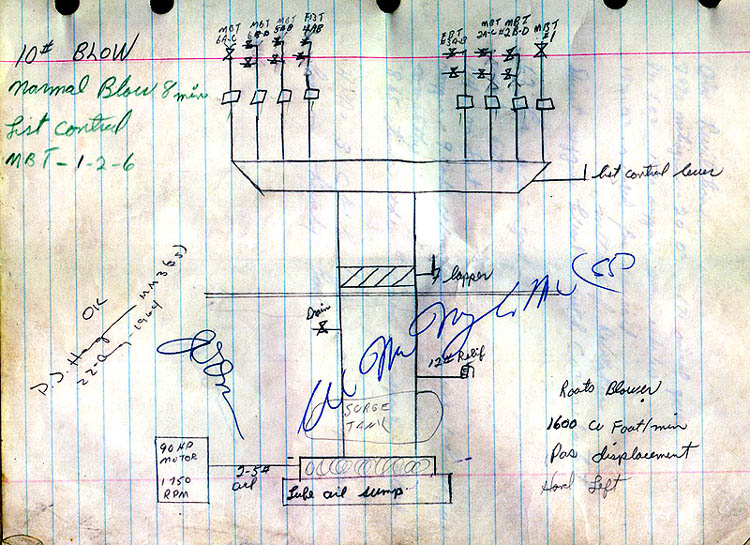 10# BLOW
Normal Blow 8 min
List control
MBT-1-2-6
MBT 6A-C
MBT
MBT 5AB
FBT 4AB
FBT
MBT 2A-C
MBT #2B-D
MBT #1
list control lever
flapper
Drain
12# Relief
OK
22-Aug-1964
SURGE TANK
Roots Blower
1600 Cu Foot/min
Pos displacement
Hard Left
90 HP
MOTOR
1750
RPM
2-5#
oil
Lube oil sump.